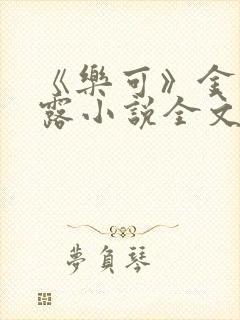 《樂可》金
露小說全文
夢負琴